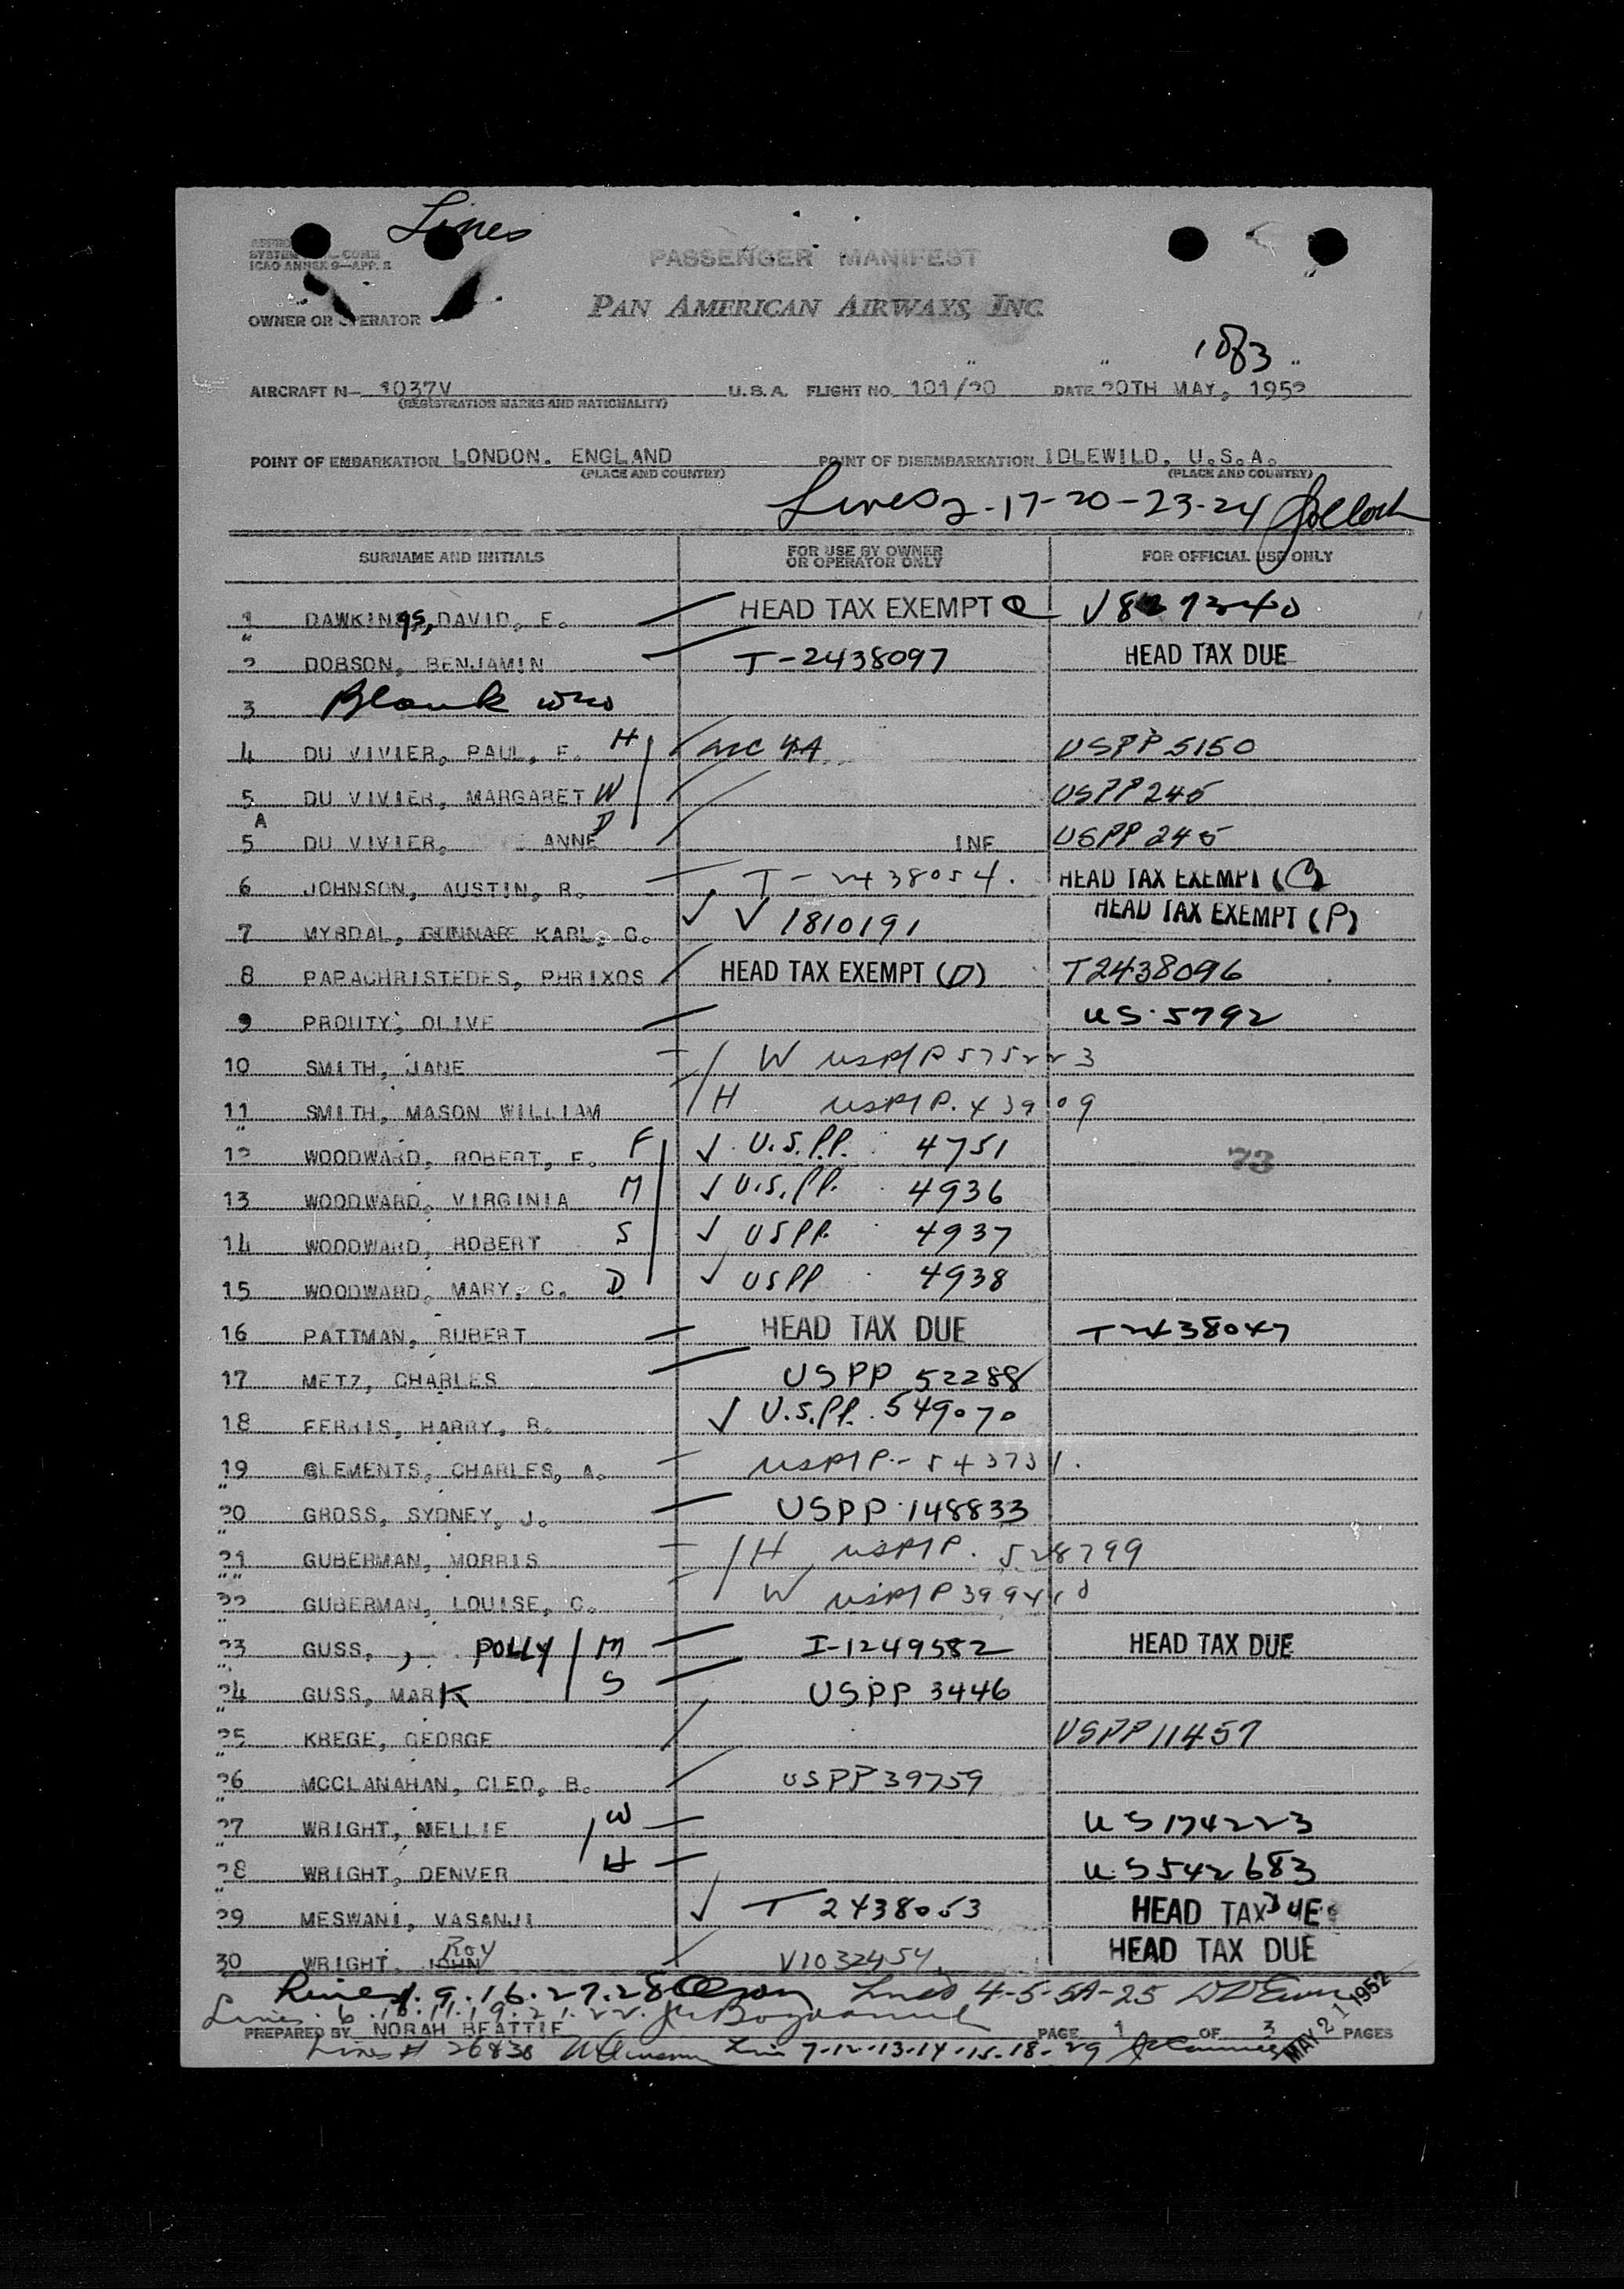 Lines
SYSTEM
ICAO ANNEX 9—APP. 2
PASSENGER MANIFEST
OWNER OR OPERATOR
PAN AMERICAN AIRWAYS, INC.
1 of 3
AIRCRAFT N- 1037V U.S.A. FLIGHT NO. 101/20 DATE 20TH MAY, 1952
(REGISTRATION MARKS AND NATIONALITY)
POINT OF EMBARKATION LONDON. ENGLAND POINT OF DISEMBARKATION IDLEWILD, U.S.A.
(PLACE AND COUNTRY) (PLACE AND COUNTRY)
Lines 2-17-20-23-24
SURNAME AND INITIALS FOR USE BY OWNER OR OPERATOR ONLY FOR OFFICIAL USE ONLY
1 DAWKINGS, DAVID, E. HEAD TAX EXEMPT
2 DOBSON, BENJAMIN T-2438097 HEAD TAX DUE
3 Blank
4 DU VIVIER, PAUL, F. H 4A USPP 5150
5 DU VIVIER, MARGARET W USPP 245
5A DU VIVIER, ANNE D INF USPP 245
6 JOHNSON, AUSTIN, R. T-2438054. HEAD TAX EXEMPT (C)
7 MYRDAL, GUNNAR KARL, G. V 1810191 HEAD TAX EXEMPT (P)
8 PAPACHRISTEDES, PHRIXOS HEAD TAX EXEMPT (D) T2438096
9 PROUTY, OLIVE US. 5792
10 SMITH, JANE W USPP 575223
11 SMITH, MASON WILLIAM H USPP. 439109
12 WOODWARD, ROBERT, F. F U.S.P.P. 4751 73
13 WOODWARD, VIRGINIA M U.S.PP. 4936
14 WOODWARD, ROBERT S USPP. 4937
15 WOODWARD, MARY, C. D USPP 4938
16 PATTMAN, RUBERT HEAD TAX DUE T2438047
17 METZ, CHARLES USPP 52288
18 FERRIS, HARRY, B. U.S.PP. 549070
19 CLEMENTS, CHARLES, A. USPP.- 543731.
20 GROSS, SYDNEY, J. USPP 148833
21 GUBERMAN, MORRIS H USPP. 528799
22 GUBERMAN, LOUISE, C. W USPP
23 GUSS, , POLLY M I-1249582 HEAD TAX DUE
24 GUSS, MARK S USPP 3446
25 KREGE, GEORGE USPP 11457
26 MCCLANAHAN, CLEO, B. USPP 39759
27 WRIGHT, NELLIE W US 174223
28 WRIGHT, DENVER H U.S 542683
29 MESWANI, VASANJI T 2438053 HEAD TAX DUE
30 WRIGHT, JOHN Roy V1032454. HEAD TAX DUE
Lines 1. 9. 16. 27. 28 Lines 4-5-5A-25
Lines. 6. 10. 11. 19. 21. 22.
PREPARED BY NORAH BEATTIE PAGE 1 OF 3 PAGES
Lines # 26 8 30 Lines 7-12-13-14-15-18-29
MAY 21 1952